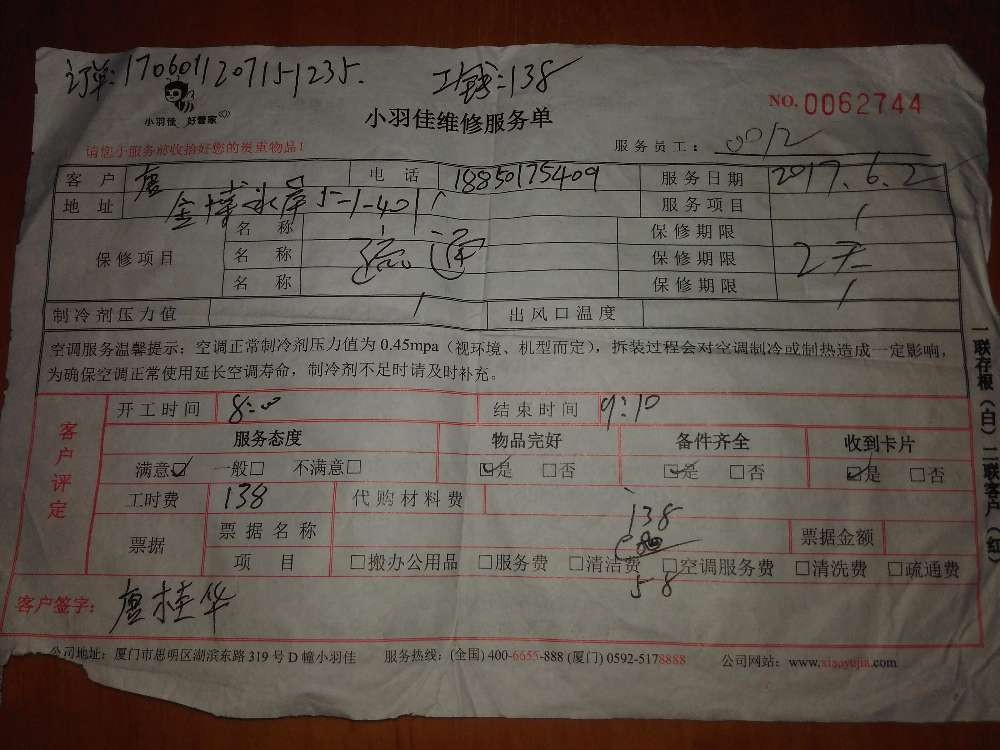 订单:1706011207151235. 工钱:138
小羽佳 好管家
小羽佳维修服务单
NO. 0062744
请您小服务前收拾好您的贵重物品!
服务员工: 0012
客户 唐 电话 18850175409 服务日期 2017.6.2
地址 5-1-401 服务项目
保修项目 名称 保修期限
名称 疏通 保修期限 2天
名称 保修期限
制冷剂压力值 出风口温度
空调服务温馨提示:空调正常制冷剂压力值为0.45mpa(视环境、机型而定),拆装过程会对空调制冷或制热造成一定影响,
为确保空调正常使用延长空调寿命,制冷剂不足时请及时补充。
客户评定
开工时间 8:00 结束时间 9:10
服务态度 物品完好 备件齐全 收到卡片
满意☑ 一般□ 不满意□ ☑是 □否 ☑是 □否 ☑是 □否
工时费 138 代购材料费
138
票据 票据名称 票据金额
项目 □搬办公用品 □服务费 □清洁费 □空调服务费 □清洗费 □疏通费
58
客户签字: 唐桂华
公司地址:厦门市思明区湖滨东路319号D幢小羽佳 服务热线:(全国)400-6655-888(厦门)0592-5178888 公司网站:www.xiaoyujia.com
一联存根(白)二联客户(红)